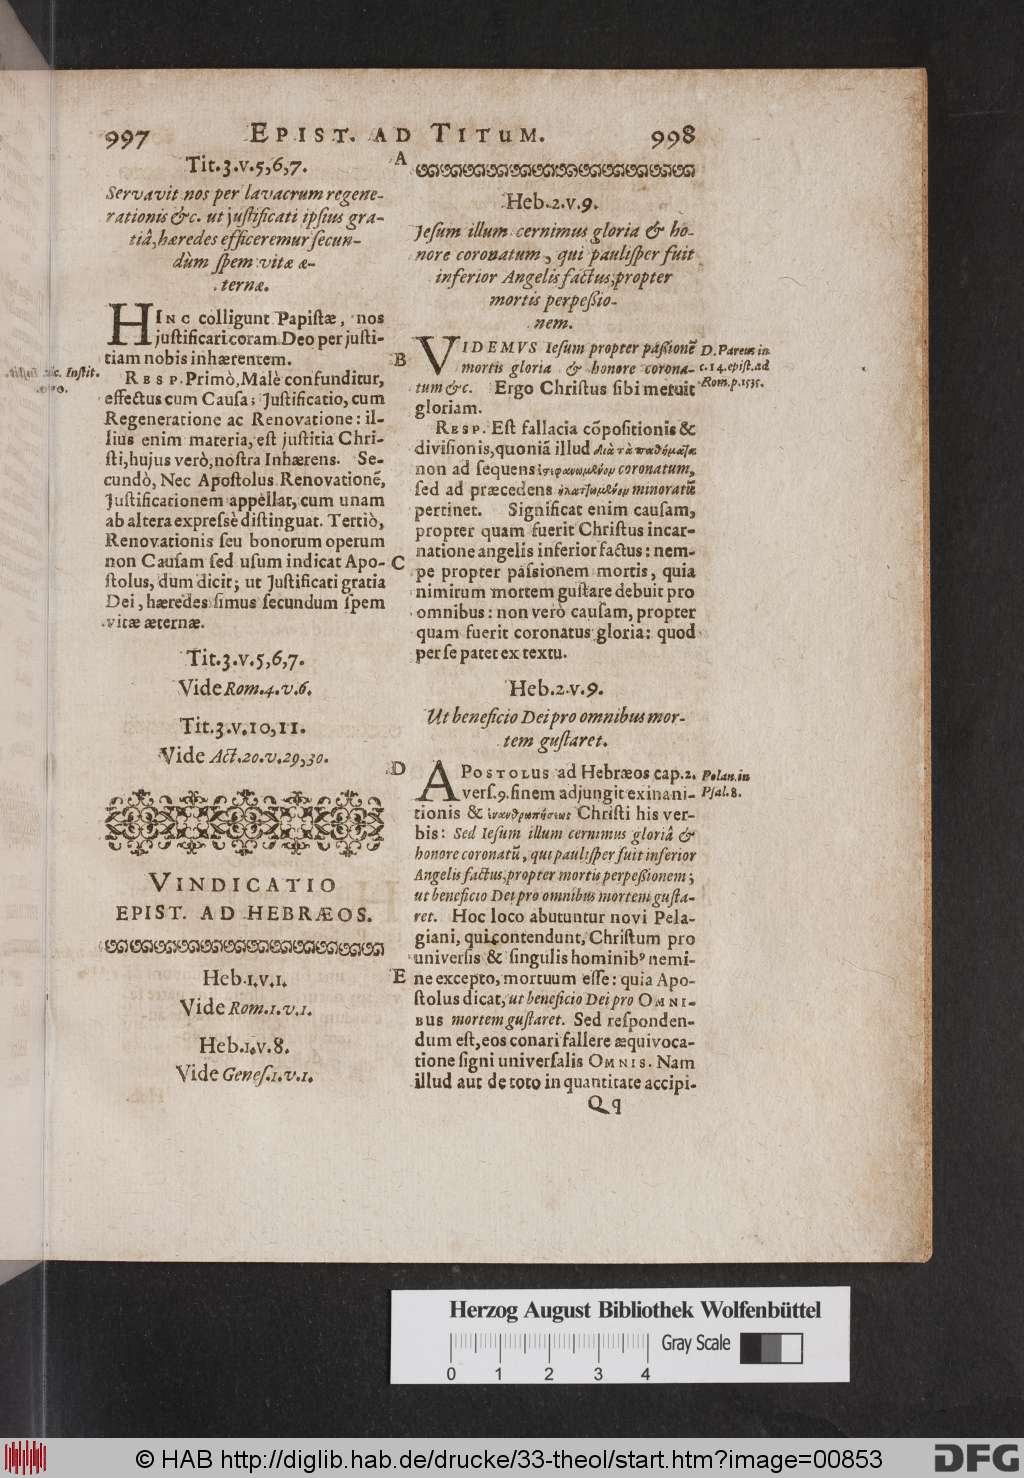 997
EPIST. AD TITUM.
998
Tit.3.v.5,6,7.
Servavit nos per lavacrum regene-
rationis &c. ut justificati ipsius gra-
tiâ, hæredes efficeremur secun-
dùm spem vitæ æ-
ternæ.
HINC colligunt Papistæ, nos
justificari coram Deo per justi-
tiam nobis inhærentem.
RESP. Primò, Malè confunditur,
effectus cum Causa; Justificatio, cum
Regeneratione ac Renovatione: il-
lius enim materia, est justitia Chri-
sti, hujus verò, nostra Inhærens. Se-
cundò, Nec Apostolus Renovationē,
Justificationem appellat, cum unam
ab altera expressè distinguat. Tertiò,
Renovationis seu bonorum operum
non Causam sed usum indicat Apo-
stolus, dum dicit; ut Justificati gratia
Dei, hæredes simus secundum spem
vitæ æternæ.
Tit.3.v.5,6,7.
Vide Rom.4.v.6.
Tit.3.v.10,11.
Vide Act.20.v.29,30.
VINDICATIO
EPIST. AD HEBRÆOS.
Heb.1.v.1.
Vide Rom.1.v.1.
Heb.1.v.8.
Vide Genes.1.v.1.
A
B
C
D
E
Heb.2.v.9.
Jesum illum cernimus gloria & ho-
nore coronatum, qui paulisper fuit
inferior Angelis factus, propter
mortis perpessio-
nem.
VIDEMVS Iesum propter passionē
mortis gloria & honore corona-
tum &c. Ergo Christus sibi meruit
gloriam.
D. Pareus in
c.14.epist.ad
Rom.p.1535.
RESP. Est fallacia cōpositionis &
divisionis, quoniā illud διὰ τὰ παθήματα
non ad sequens coronatum,
sed ad præcedens minoratū
pertinet. Significat enim causam,
propter quam fuerit Christus incar-
natione angelis inferior factus: nem-
pe propter passionem mortis, quia
nimirum mortem gustare debuit pro
omnibus: non verò causam, propter
quam fuerit coronatus gloria: quod
per se patet ex textu.
Heb.2.v.9.
Ut beneficio Dei pro omnibus mor-
tem gustaret.
APOSTOLUS ad Hebræos cap.2.
vers.9. finem adjungit exinani-
tionis & Christi his ver-
bis: Sed Iesum illum cernimus gloriâ &
honore coronatū, qui paulisper fuit inferior
Angelis factus, propter mortis perpessionem;
ut beneficio Dei pro omnibus mortem gusta-
ret. Hoc loco abutuntur novi Pela-
giani, qui contendunt, Christum pro
universis & singulis hominib9 nemi-
ne excepto, mortuum esse: quia Apo-
stolus dicat, ut beneficio Dei pro OMNI-
BUS mortem gustaret. Sed responden-
dum est, eos conari fallere æquivoca-
tione signi universalis OMNIS. Nam
illud aut de toto in quantitate accipi-
Polan.in
Psal.8.
Qq
Herzog August Bibliothek Wolfenbüttel
Gray Scale
0 1 2 3 4
© HAB http://diglib.hab.de/drucke/33-theol/start.htm?image=00853
DFG